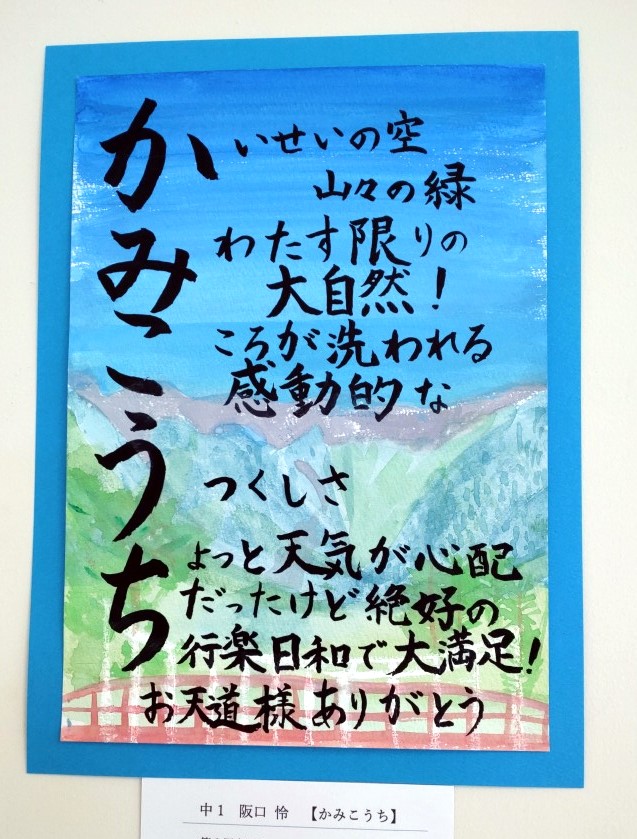 かいせいの空
山々の緑
みわたす限りの
大自然!
こころが洗われる
感動的な
うつくしさ
ちょっと天気が心配
だったけど絶好の
行楽日和で大満足!
お天道様ありがとう
中1 阪口 怜 【かみこうち】